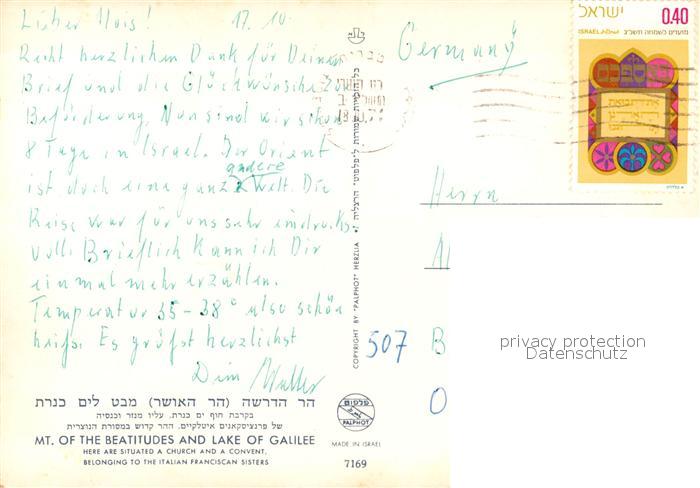 Lieber Alois! 17.10.
Recht herzlichen Dank für Deinen
Brief und die Glückwünsche zur
Beförderung. Nun sind wir schon
8 Tage in Israel. Der Orient
ist doch eine ganz andere Welt. Die
Reise war für uns sehr eindrucks-
voll. Brieflich kann ich Dir
einmal mehr erzählen.
Temperatur 35-38° also schön
heiß. Es grüßt herzlichst
Dein
הר הדרשה (הר האושר) מבט לים כנרת
בקרבת חוף ים כנרת. עליו מנזר וכנסיה
של פרנציסקאנים איטלקיים. ההר קדוש במסורת הנוצרית
MT. OF THE BEATITUDES AND LAKE OF GALILEE
HERE ARE SITUATED A CHURCH AND A CONVENT,
BELONGING TO THE ITALIAN FRANCISCAN SISTERS
פלפוט
PALPHOT
MADE IN ISRAEL
7169
כל הזכויות שמורות ל"פלפוט" הרצליה
COPYRIGHT BY "PALPHOT" HERZLIA
Germany
ישראל 0.40
ISRAEL
מועדים לשמחה תשל"ב
Herrn
507 B
O
privacy protection
Datenschutz